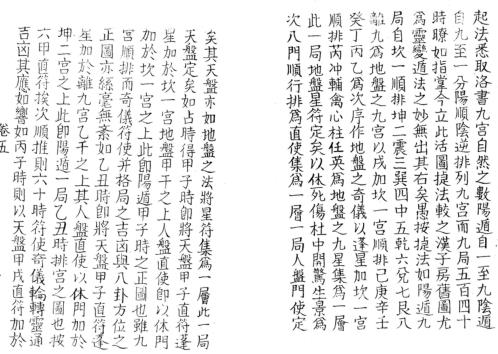 起法悉取洛書九宮自然之數陽遁自一至九陰遁
自九至一分陽順陰逆排列九宮而九局五百四十
時瞭如指掌今立此活圖捷法較之漢子房舊圖尤
為靈變遁法之妙無出其右矣愚按捷法如陽遁九
局自坎一順排坤二震三巽四中五乾六兌七艮八
離九為地盤之九宮以戊加坎一宮順排己庚辛壬
癸丁丙乙為次序作地盤之奇儀以蓬星加坎一宮
順排芮冲輔禽心柱任英為地盤之九星集為一層
此一局地盤星符定矣以休死傷杜中開驚生景為
次八門順行排為直使集為一層一局人盤門使定
矣其天盤亦如地盤之法將星符集為一層此一局
天盤定矣如占時得甲子時即將天盤甲子直符蓬
星加於坎一宮地盤甲干之上人盤直使即以休門
加於坎一宮之上此即陽遁甲子時之正圖也雖九
宮順排而奇儀符使并格局之吉凶與八卦方位之
正圖亦絲毫無紊如乙丑時即將天盤甲子直符蓬
星加於離九宮乙干之上其人盤直使以休門加於
坤二宮之上此即陽遁一局乙丑時排宮之圖也按
六甲直符挨次順推則六十時符使奇儀輪轉靈通
吉凶其應如響如丙子時則以天盤甲戌直符加於
卷五